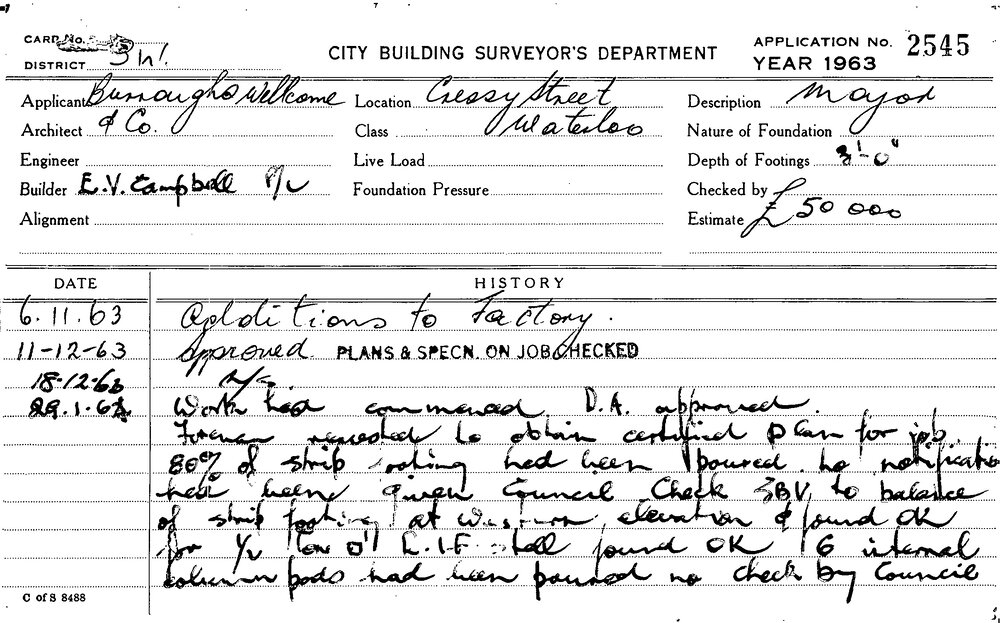 CARD No.
CITY BUILDING SURVEYOR'S DEPARTMENT
APPLICATION No. 2545
DISTRICT
YEAR 1963
Applicant Burroughs Wellcome
Location Cressy Street
Description Major
Architect & Co.
Class Waterloo
Nature of Foundation
Engineer
Live Load
Depth of Footings 3'-0"
Builder E.V. Campbell P/L
Foundation Pressure
Checked by
Alignment
Estimate £50 000
DATE
HISTORY
6.11.63 Additions to Factory.
11-12-63 Approved. PLANS & SPECN. ON JOB CHECKED
18-12-63 N/S
29.1.64 Work had commenced. D.A. approved.
Foreman requested to obtain certified plan for job.
80% of strip footing had been poured no notification
had been given Council. Check SBV to balance
of strip footing at western elevation & found OK
for found OK 16 internal
column pads had been poured no check by Council
C of S 8488